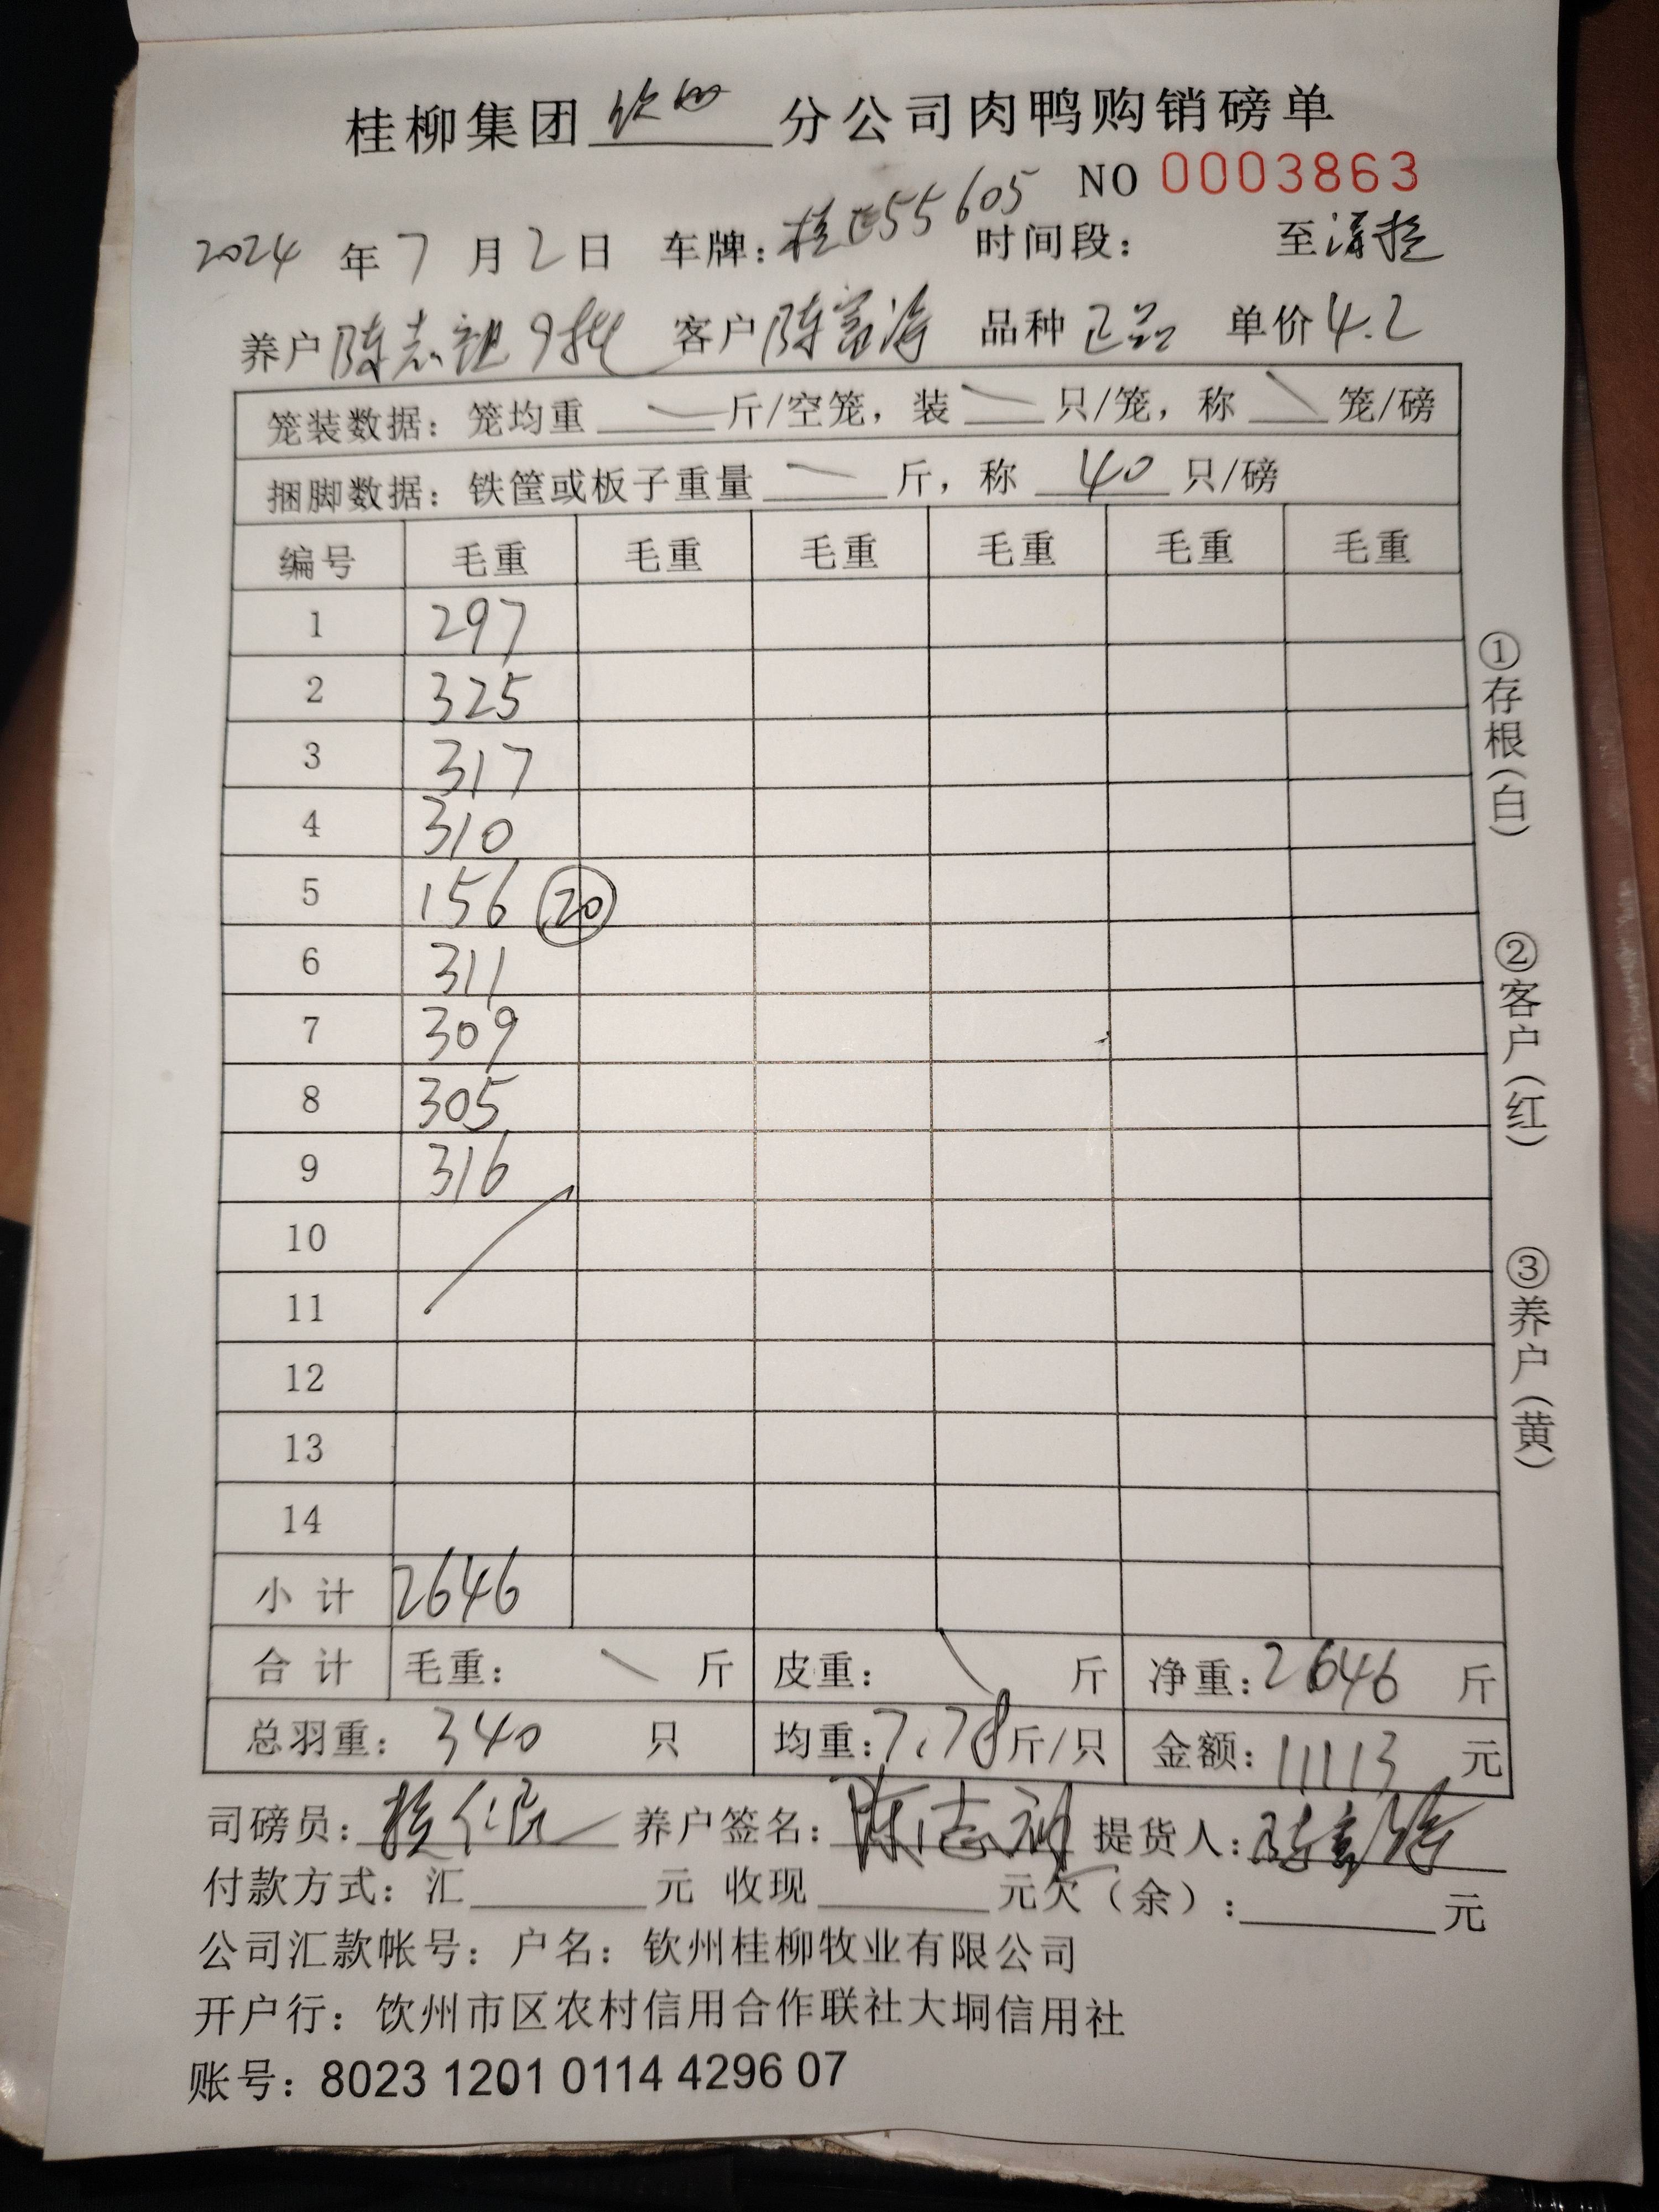 桂柳集团 钦州 分公司肉鸭购销磅单
NO 0003863
2024 年 7 月 2 日 车牌: 桂E55605 时间段: 至
养户 陈志祖 9批 客户 陈富海 品种 正品 单价 4.2
笼装数据: 笼均重 斤/空笼, 装 只/笼, 称 笼/磅
捆脚数据: 铁筐或板子重量 斤, 称 40 只/磅
编号 毛重 毛重 毛重 毛重 毛重 毛重
1 297
2 325
3 317
4 310
5 156 20
6 311
7 309
8 305
9 316
10
11
12
13
14
小计 2646
合计 毛重: 斤 皮重: 斤 净重: 2646 斤
总羽重: 340 只 均重: 7.78 斤/只 金额: 11113 元
司磅员: 养户签名: 陈志祖 提货人: 陈富海
付款方式: 汇 元 收现 元欠(余): 元
公司汇款帐号: 户名: 钦州桂柳牧业有限公司
开户行: 钦州市区农村信用合作联社大垌信用社
账号: 8023 1201 0114 4296 07
①存根(白)
②客户(红)
③养户(黄)